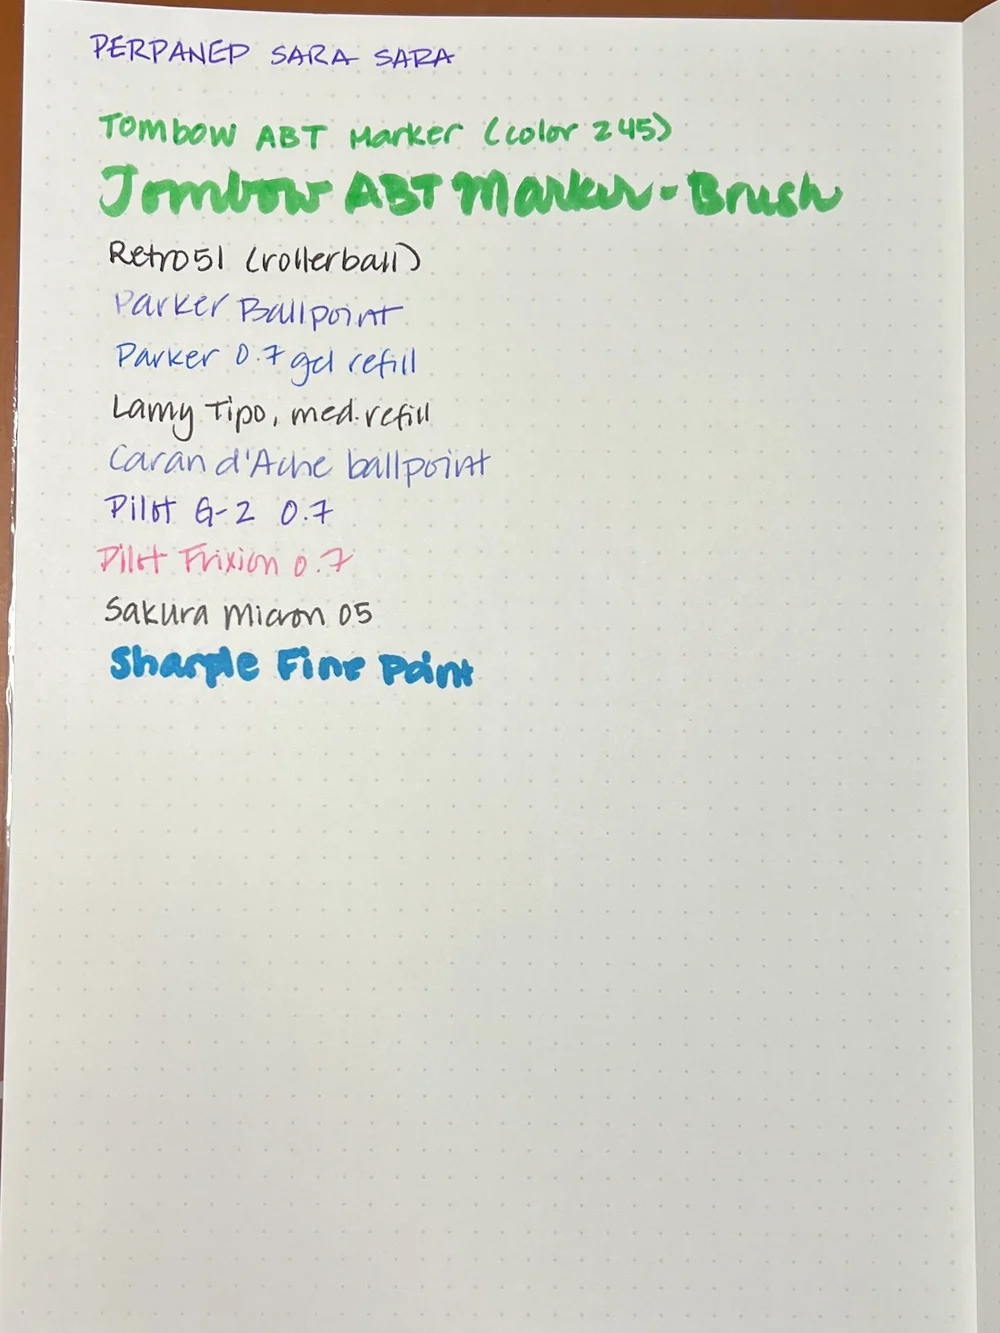 PERPANEP SARA SARA
Tombow ABT Marker (color 245)
Tombow ABT Marker - Brush
Retro51 (rollerball)
Parker Ballpoint
Parker 0.7 gel refill
Lamy Tipo, med. refill
Caran d'Ache ballpoint
Pilot G-2 0.7
Pilot Frixion 0.7
Sakura Micron 05
Sharpie Fine Point